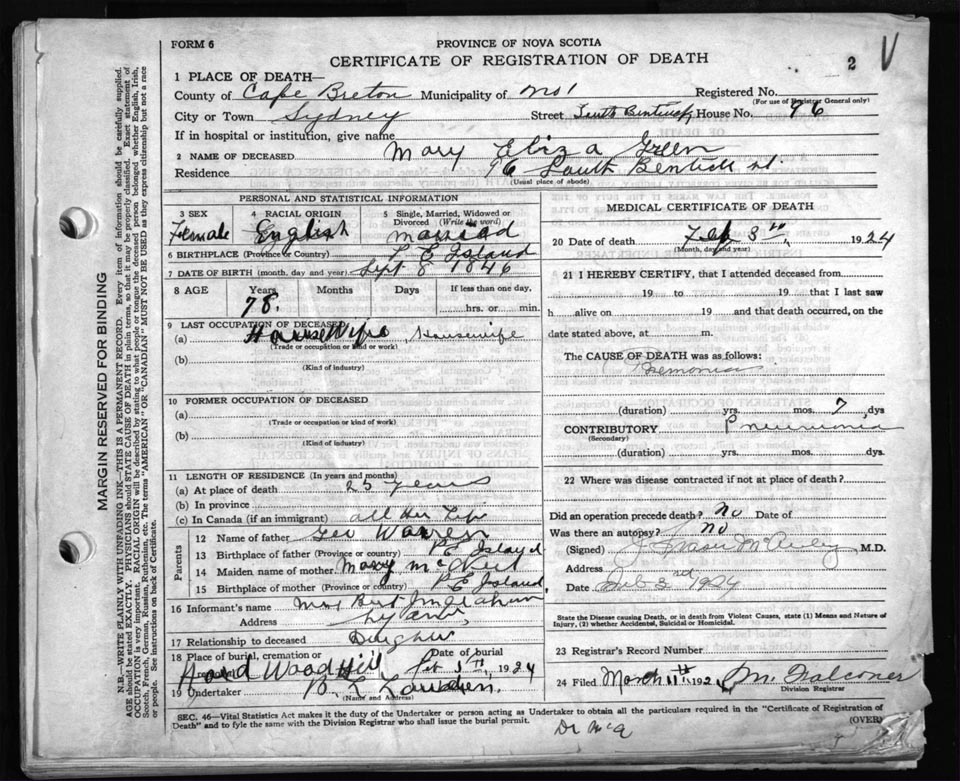 FORM 6
PROVINCE OF NOVA SCOTIA
CERTIFICATE OF REGISTRATION OF DEATH
2 V
1 PLACE OF DEATH—
County of Cape Breton Municipality of No 1 Registered No.
(For use of Registrar General only)
City or Town Sydney Street House No. 96
If in hospital or institution, give name
2 NAME OF DECEASED Mary Eliza Green
Residence 96 South Bentick St.
(Usual place of abode)
PERSONAL AND STATISTICAL INFORMATION
3 SEX 4 RACIAL ORIGIN 5 Single, Married, Widowed or Divorced (Write the word)
Female English Married
6 BIRTHPLACE (Province or Country) P E Island
7 DATE OF BIRTH (month, day and year) Sept 8 1846
8 AGE Years Months Days If less than one day,
78. hrs. or min.
9 LAST OCCUPATION OF DECEASED
(a) House Wife Housewife
(Trade or occupation or kind or work)
(b)
(Kind of industry)
10 FORMER OCCUPATION OF DECEASED
(a)
(Trade or occupation or kind of work)
(b)
(Kind of industry)
11 LENGTH OF RESIDENCE (In years and months)
(a) At place of death 25 years
(b) In province
(c) In Canada (if an immigrant) all her Life
Parents
12 Name of father Geo Warren
13 Birthplace of father (Province or country) P E Island
14 Maiden name of mother Mary
15 Birthplace of mother (Province or country) P E Island
16 Informant's name Mrs Bert Ingraham
Address
17 Relationship to deceased
18 Place of burial, cremation or Date of burial
Hardwood Hill Feb 5 th, 1924
19 Undertaker
(Name and Address)
MEDICAL CERTIFICATE OF DEATH
20 Date of death Feb 3 th, 1924
(Month, day and year)
21 I HEREBY CERTIFY, that I attended deceased from
19 to 19 that I last saw
h alive on 19 and that death occurred, on the
date stated above, at m.
The CAUSE OF DEATH was as follows:
(duration) yrs. mos. 7 dys
CONTRIBUTORY Pneumonia
(Secondary)
(duration) yrs. mos. dys.
22 Where was disease contracted if not at place of death?
Did an operation precede death? No Date of
Was there an autopsy? No
(Signed) M.D.
Address
Date 1924
State the Disease causing Death, or in death from Violent Causes, state (1) Means and Nature of
Injury, (2) whether Accidental, Suicidal or Homicidal.
23 Registrar's Record Number
24 Filed March 11 th 192 M. Falconer
Division Registrar
SEC. 46—Vital Statistics Act makes it the duty of the Undertaker or person acting as Undertaker to obtain all the particulars required in the "Certificate of Registration of
Death" and to fyle the same with the Division Registrar who shall issue the burial permit. (OVER)
MARGIN RESERVED FOR BINDING
N.B.—WRITE PLAINLY WITH UNFADING INK—THIS IS A PERMANENT RECORD. Every item of information should be carefully supplied.
AGE should be stated EXACTLY. PHYSICIANS should STATE CAUSE OF DEATH in plain terms, so that it may be properly classified. Exact statement of
OCCUPATION is very important. RACIAL ORIGIN will be described by stating to what people or tongue the deceased person belonged whether English, Irish,
Scotch, French, German, Russian, Ruthenian, etc. The terms "AMERICAN" OR "CANADIAN" MUST NOT BE USED as they express citizenship but not a race
or people. See instructions on back of Certificate.